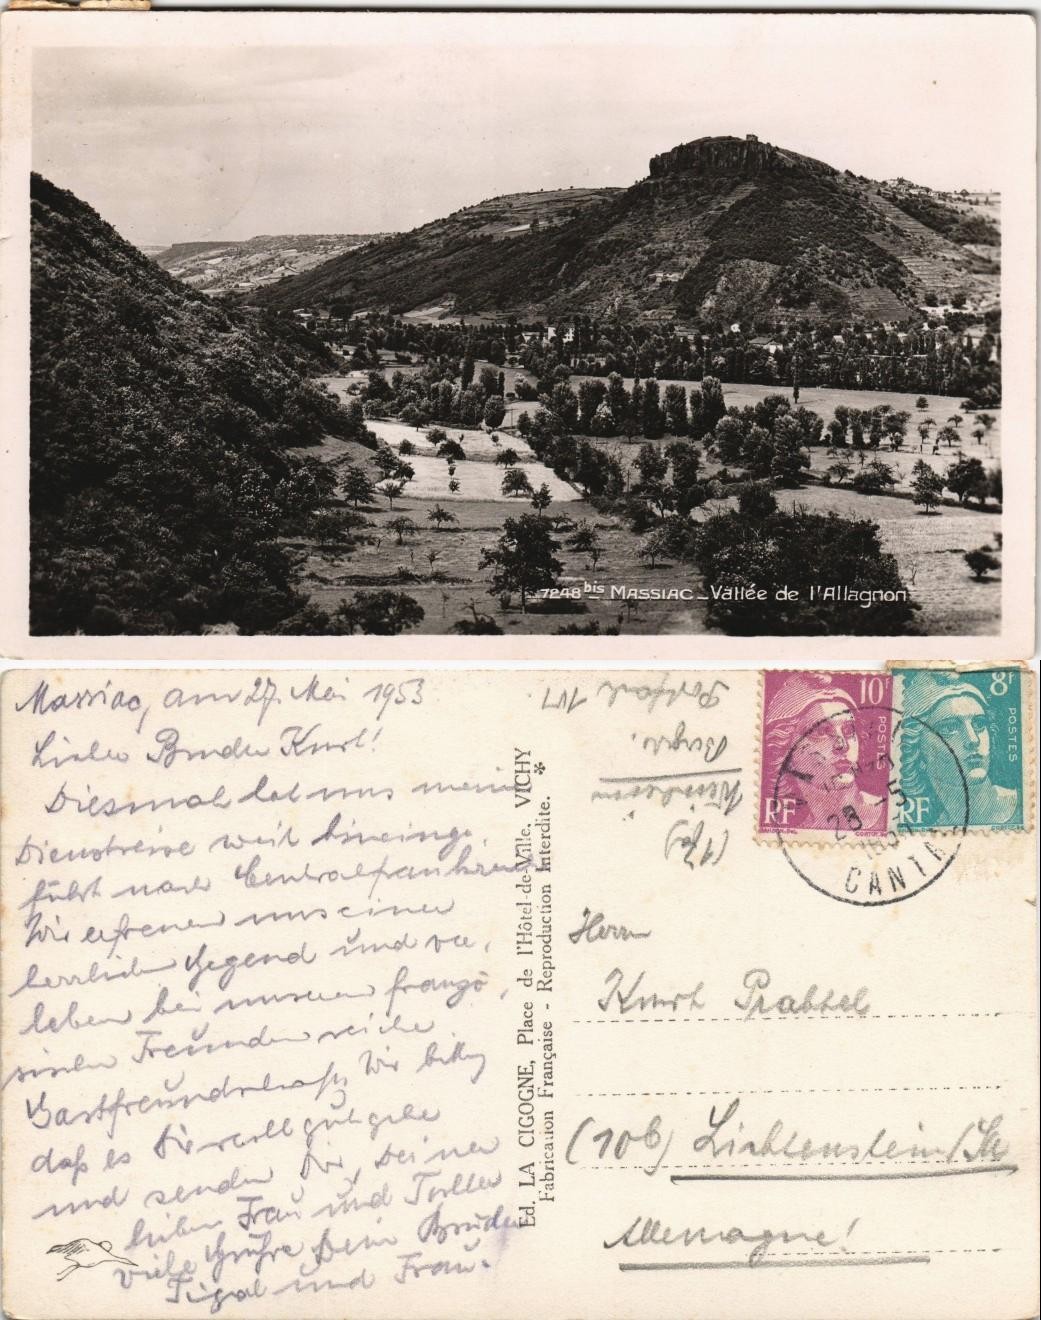 7248 bis MASSIAC - Vallée de l'Allagnon
Massiac, am 27. Mai 1953
Lieber Bruder Kurt!
Diesmal hat uns meine
Dienstreise weit hineinge,
führt nach Centralfrankreich
Wir erfreuen uns einer
herrlichen Gegend und er,
leben bei unseren franzö,
sischen Freunden reiche
Gastfreundschaft. Wir hoffen
daß es Dir recht gut gehe
und senden Dir, Deiner
lieben Frau und Tochter
viele Grüße Dein Bruder
und Frau.
Ed. LA CIGOGNE, Place de l'Hôtel-de-Ville, VICHY
Fabrication Française - Reproduction Interdite.
Postfach 101
10f
POSTES
RF
8f
POSTES
RF
28 -5
CANTAL
Herrn
Kurt
(10b) Lichtenstein/Sa
Allemagne!